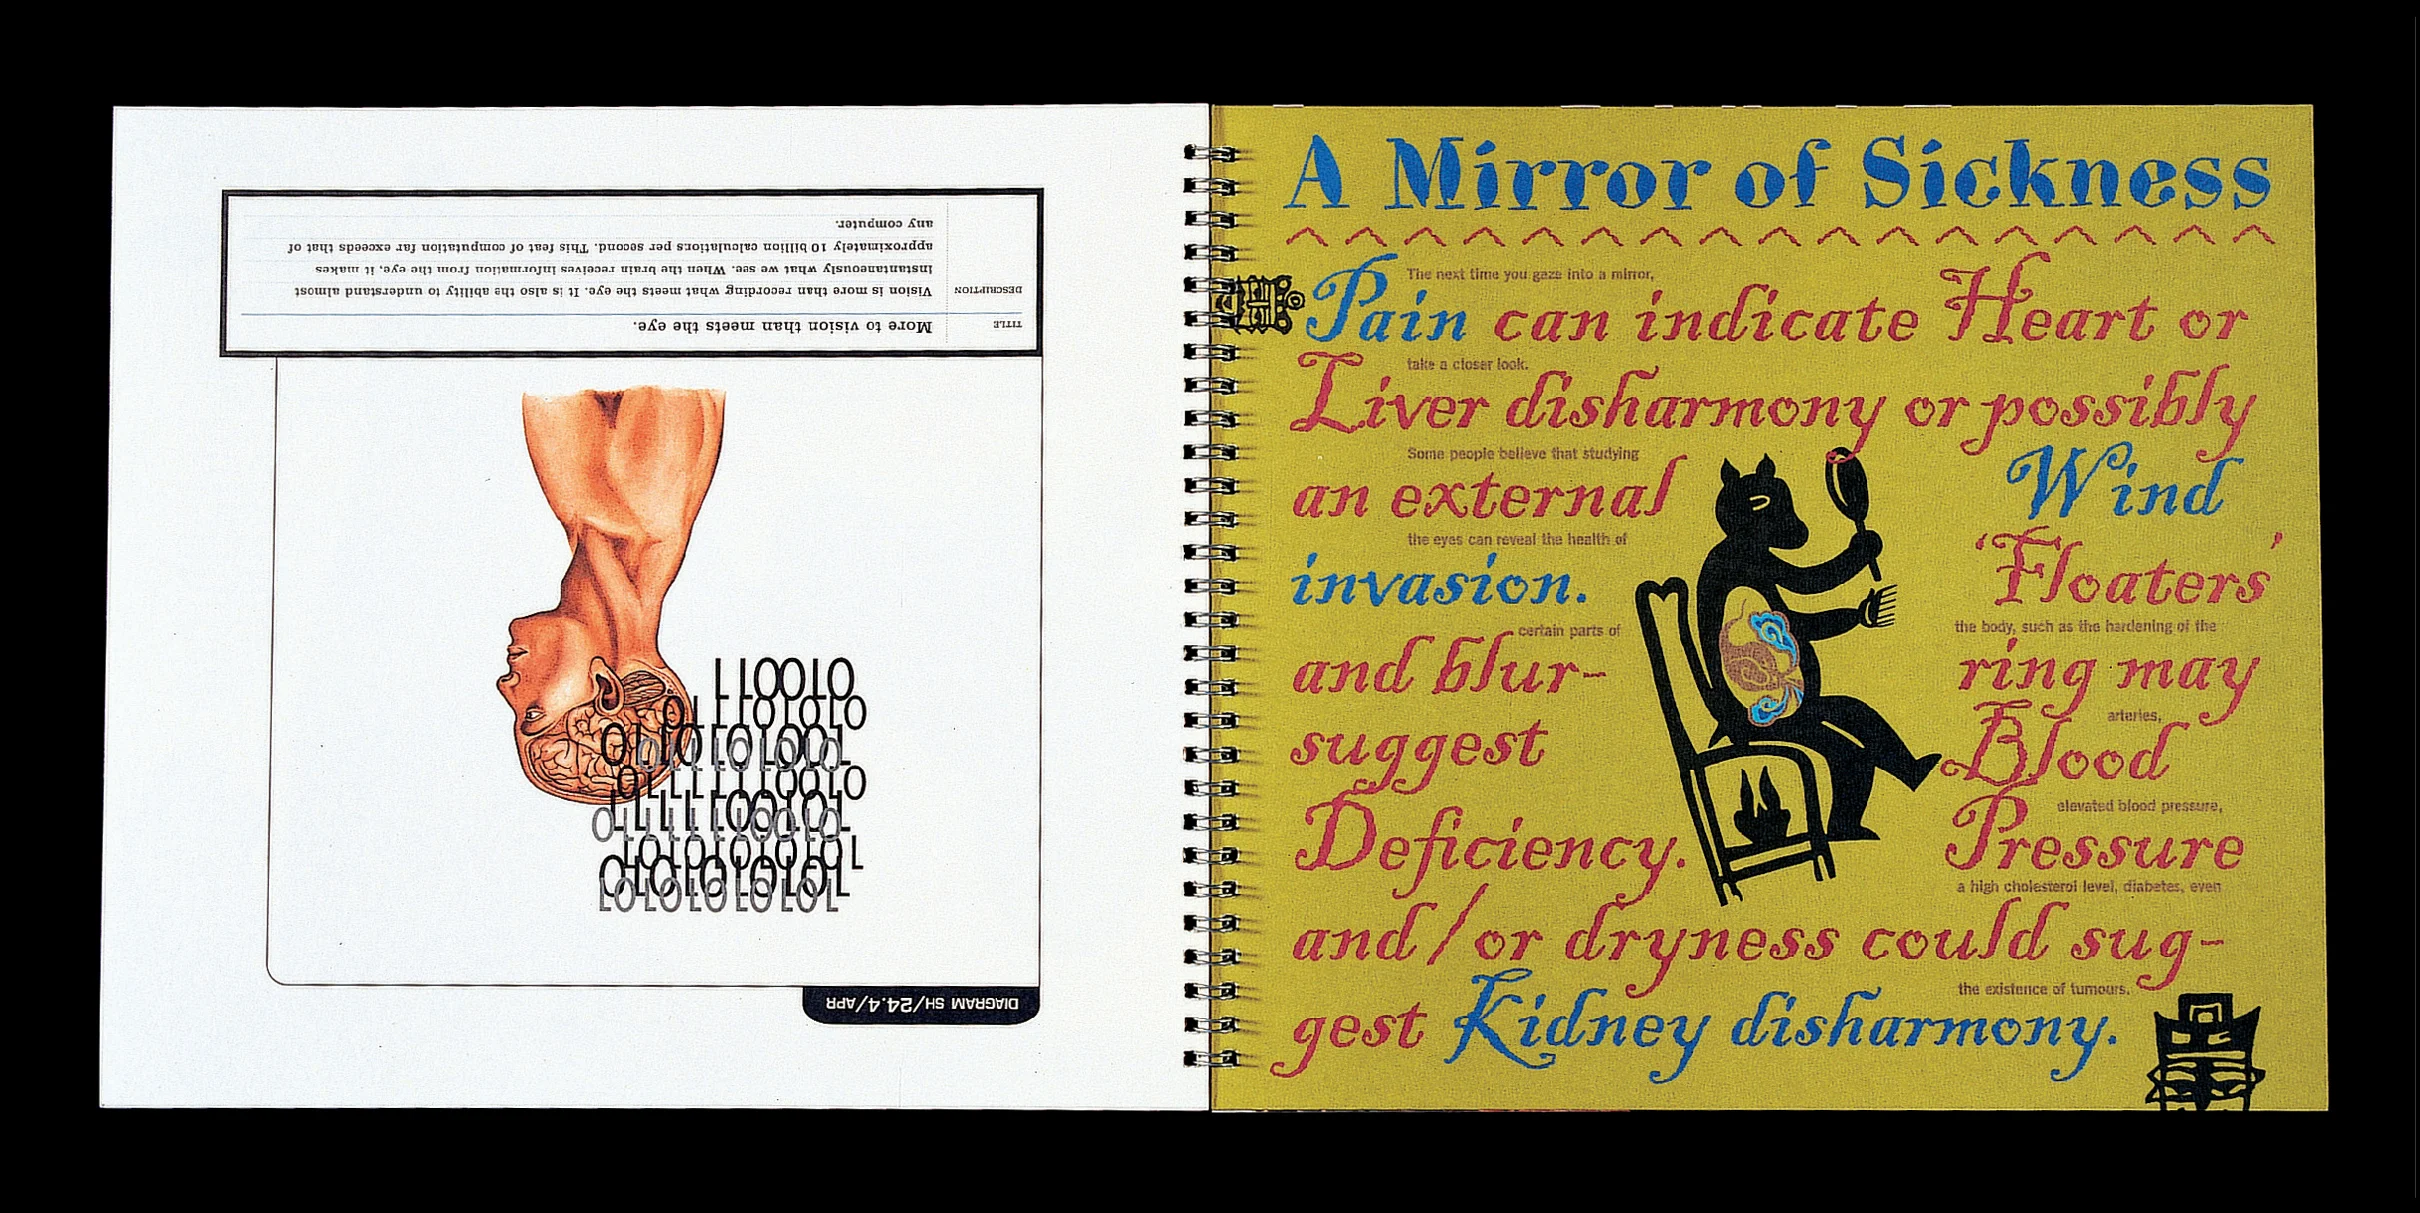 DIAGRAM SH/24.4/APR
010011
TITLE More to vision than meets the eye.
DESCRIPTION Vision is more than recording what meets the eye. It is also the ability to understand almost
instantaneously what we see. When the brain receives information from the eye, it makes
approximately 10 billion calculations per second. This feat of computation far exceeds that of
any computer.
A Mirror of Sickness
The next time you gaze into a mirror,
Pain can indicate Heart or
take a closer look.
Liver disharmony or possibly
Some people believe that studying
an external Wind
the eyes can reveal the health of
invasion. 'Floaters'
certain parts of the body, such as the hardening of the
and blur- ring may
arteries,
suggest Blood
elevated blood pressure,
Deficiency. Pressure
a high cholesterol level, diabetes, even
and/or dryness could sug-
the existence of tumours.
gest Kidney disharmony.